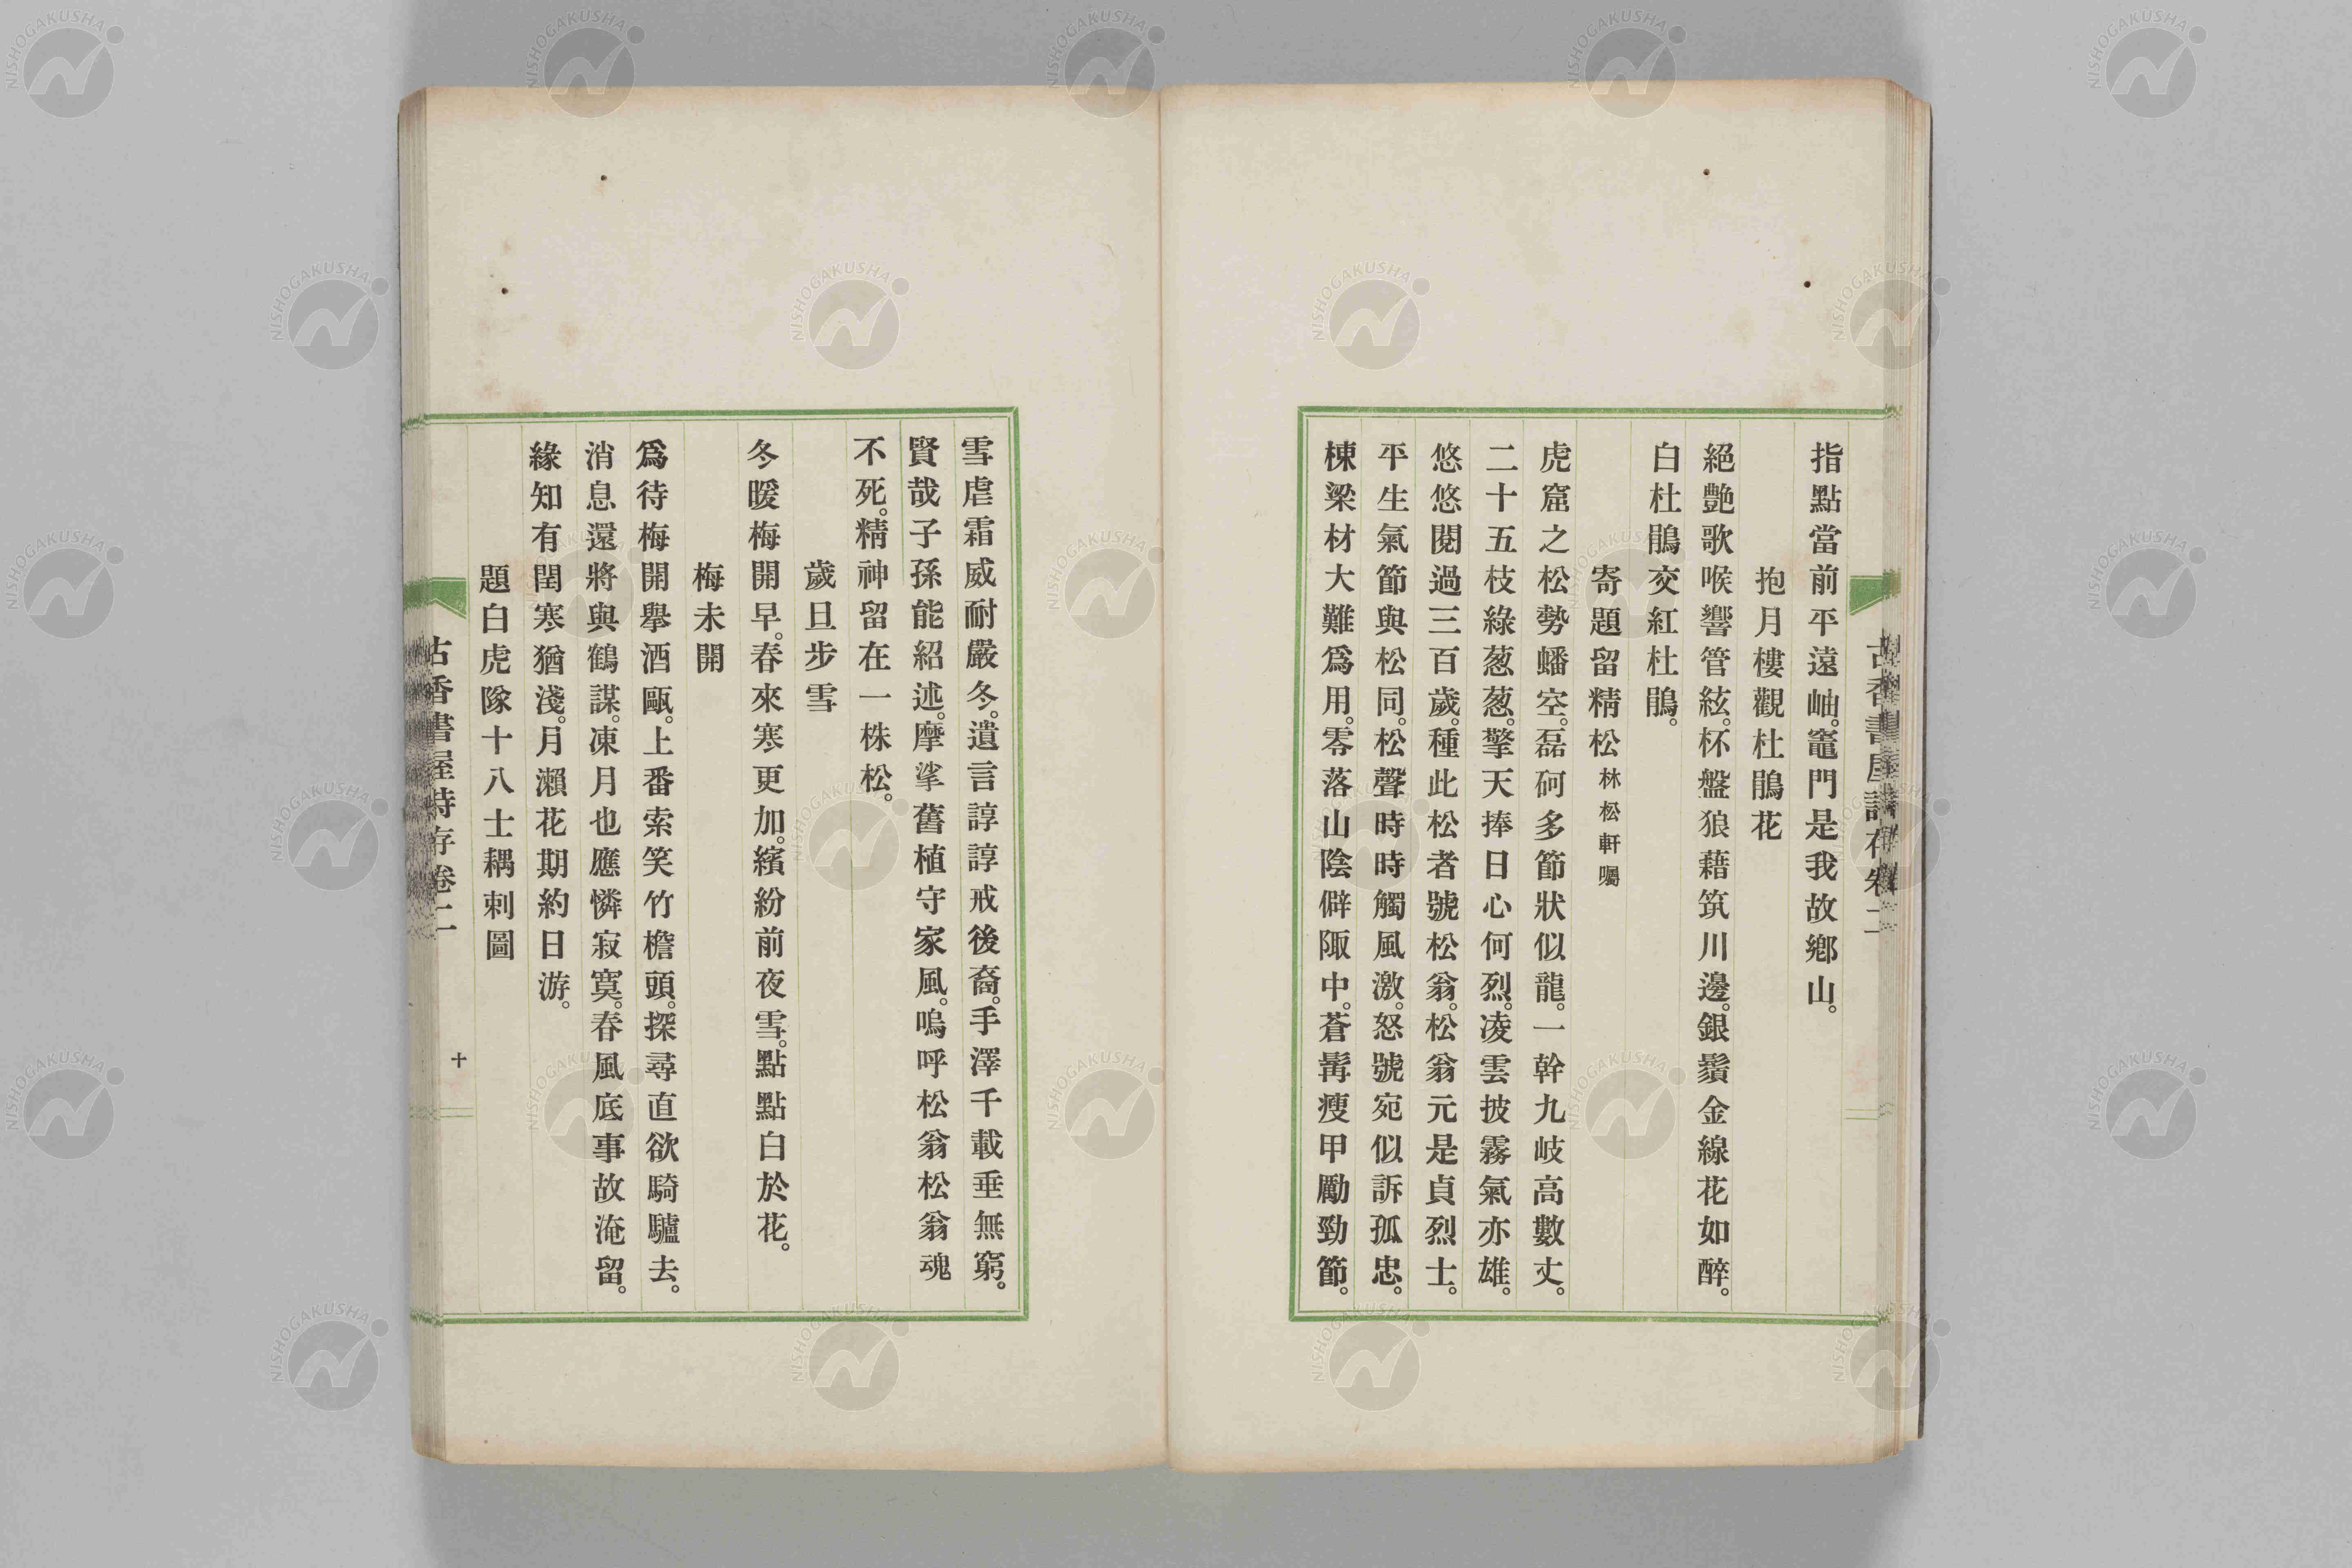 指點當前平遠岫。竈門是我故鄕山。
抱月樓觀杜鵑花
絕艶歌喉響管絃。杯盤狼藉筑川邊。銀鬚金線花如醉。
白杜鵑交紅杜鵑。
寄題留精松林松軒囑
虎窟之松勢蟠空。磊砢多節狀似龍。一幹九岐高數丈。
二十五枝綠葱葱。擎天捧日心何烈。凌雲披霧氣亦雄。
悠悠閱過三百歲。種此松者號松翁。松翁元是貞烈士。
平生氣節與松同。松聲時時觸風激。怒號宛似訴孤忠。
棟梁材大難爲用。零落山陰僻陬中。蒼髯瘦甲勵勁節。
古香書屋詩存卷二
雪虐霜威耐嚴冬。遺言諄諄戒後裔。手澤千載垂無窮。
賢哉子孫能紹述。摩挲舊植守家風。嗚呼松翁松翁魂
不死。精神留在一株松。
歲旦步雪
冬暖梅開早。春來寒更加。繽紛前夜雪。點點白於花。
梅未開
爲待梅開擧酒甌。上番索笑竹檐頭。探尋直欲騎驢去。
消息還將與鶴謀。凍月也應憐寂寞。春風底事故淹留。
緣知有閏寒猶淺。月瀨花期約日游。
題白虎隊十八士耦刺圖
古香書屋詩存卷二
十
NISHOGAKUSHA